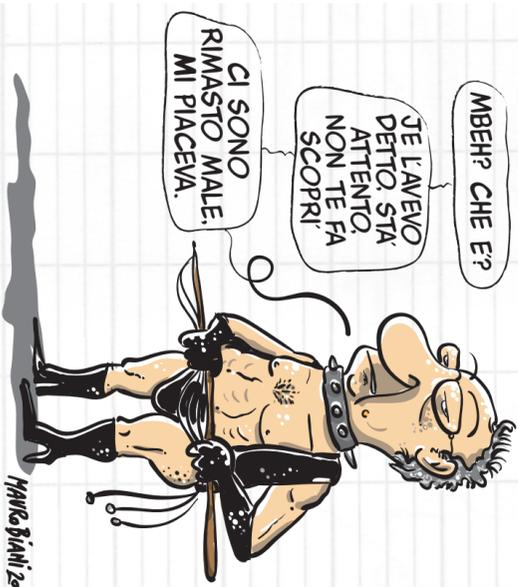 MBEH? CHE E'?
JE L'AVEVO
DETTO. STA'
ATTENTO.
NON TE FA
SCOPRI'
CI SONO
RIMASTO MALE.
MI PIACEVA.
MAURO BIANI 20